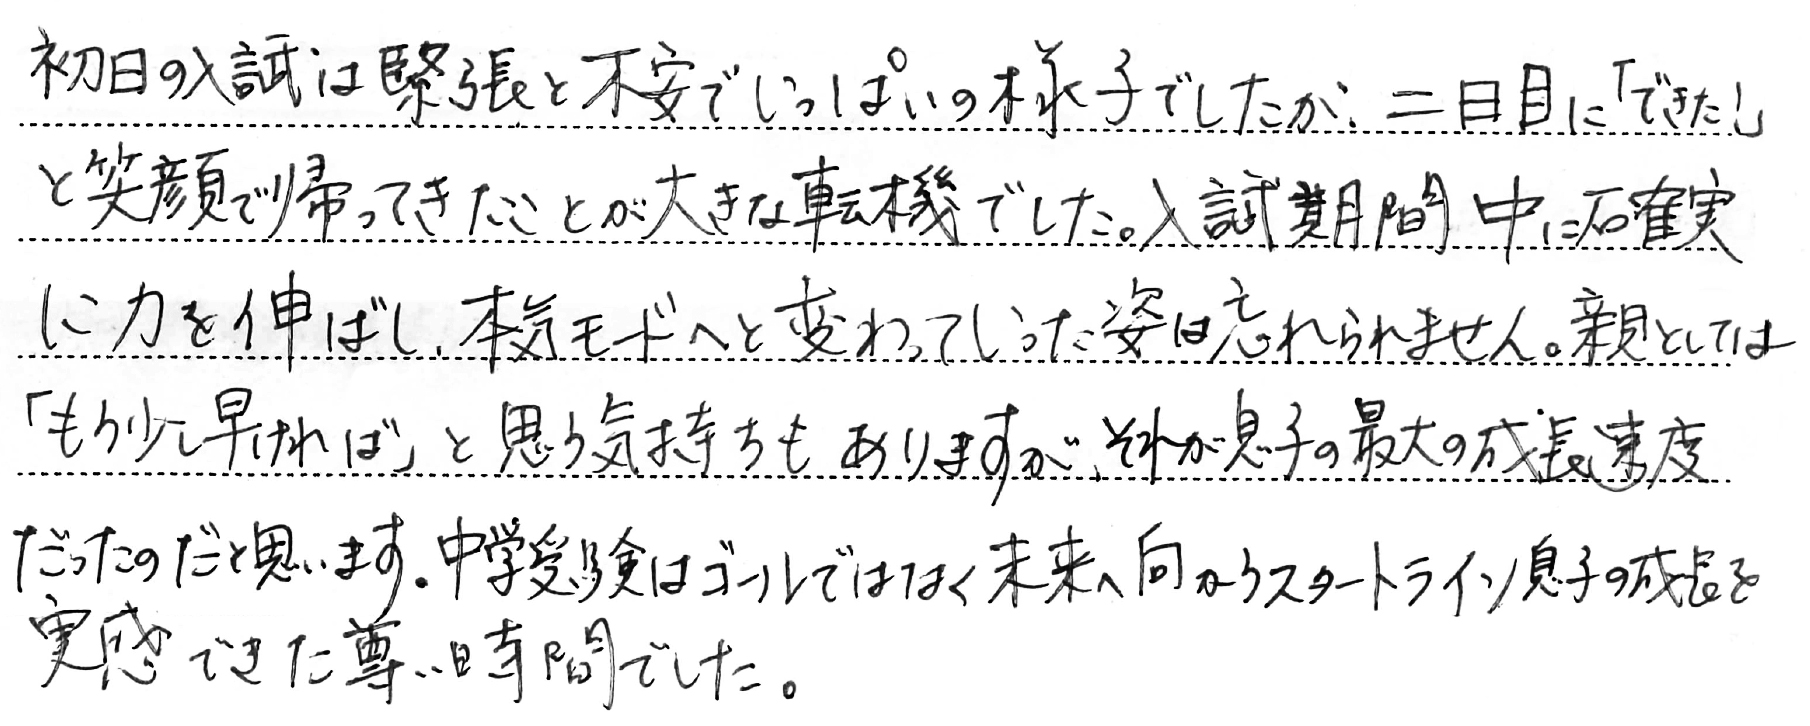 初日の入試は緊張と不安でいっぱいの様子でしたが、二日目に「できた!」
と笑顔で帰ってきたことが大きな転機でした。入試期間中に確実
に力を伸ばし、本気モードへと変わっていった姿は忘れられません。親としては
「もう少し早ければ」と思う気持ちもありますが、それが息子の最大の成長速度
だったのだと思います。中学受験はゴールではなく未来へ向かうスタートライン息子の成長を
実感できた尊い時間でした。